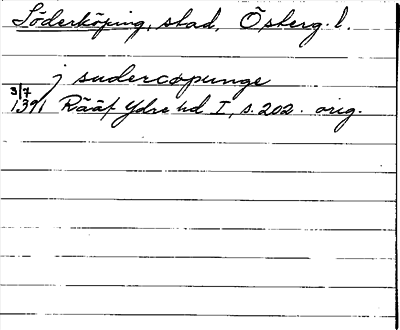 Söderköping, stad, Österg. l.
j sudercopunge
3/7
1391 Rääf Ydre hd I, s. 202. orig.